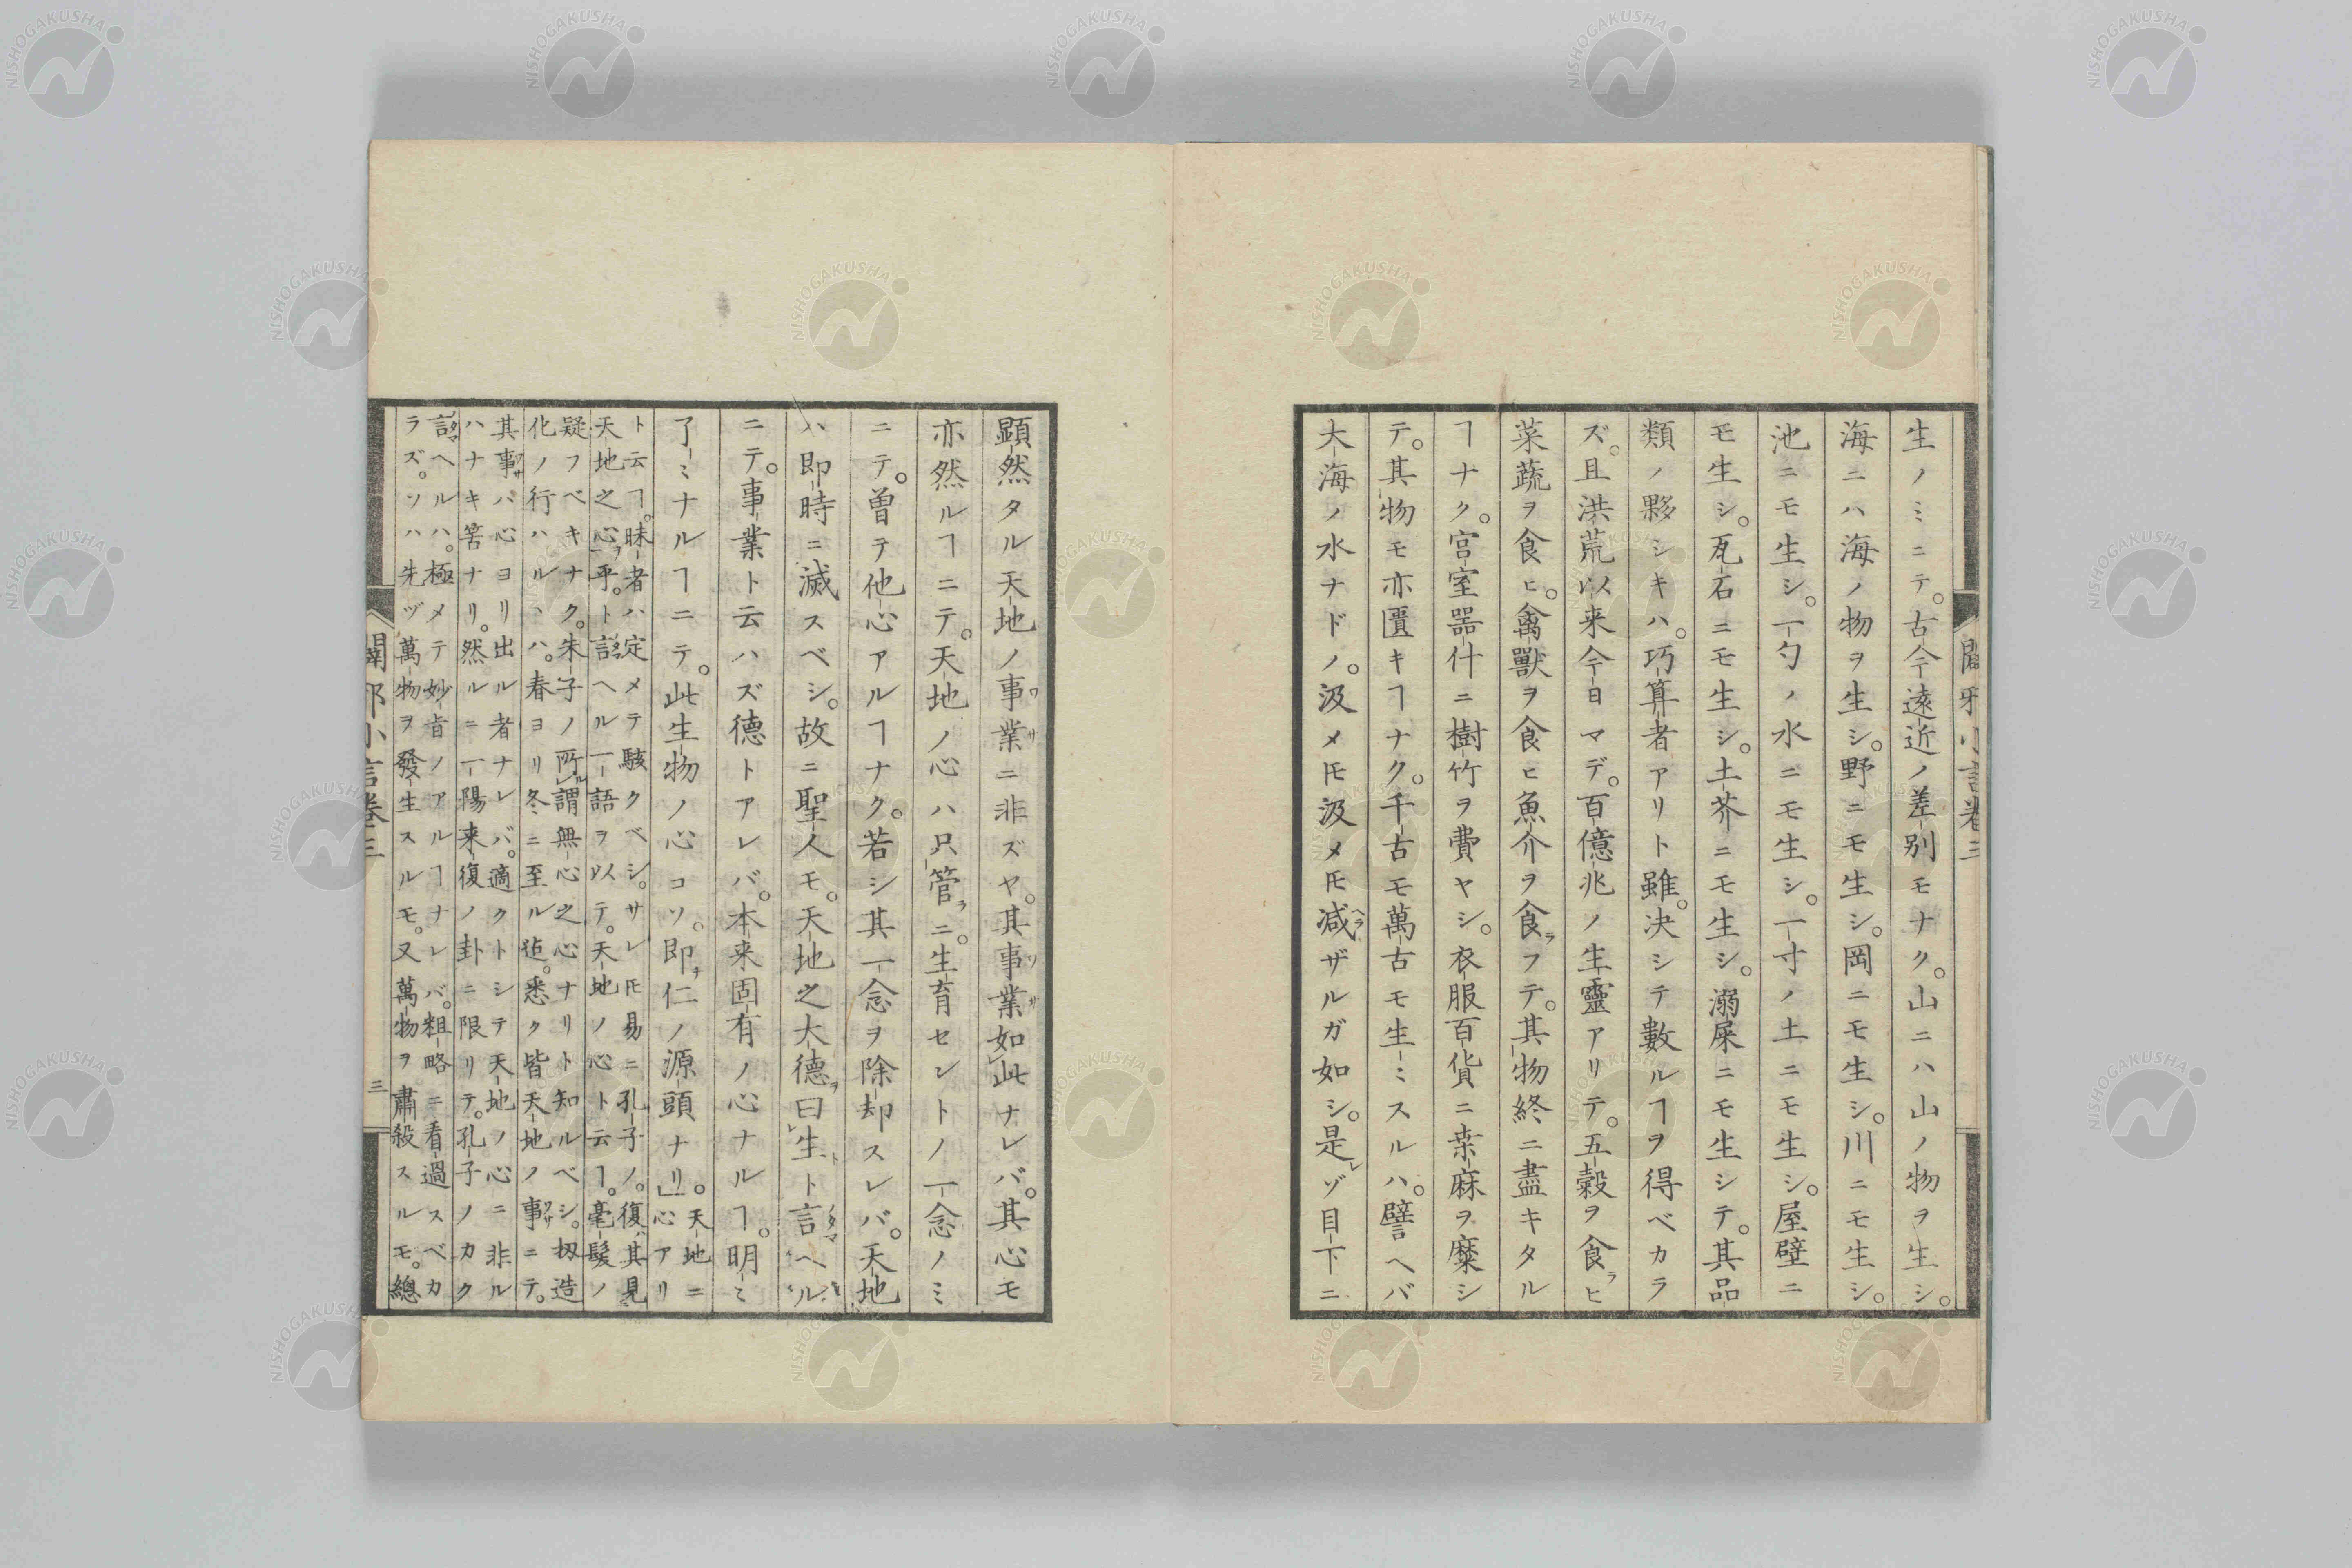 生ノミニテ。古今遠近ノ差別モナク。山ニハ山ノ物ヲ生シ。
海ニハ海ノ物ヲ生シ。野ニモ生シ。岡ニモ生シ。川ニモ生シ。
池ニモ生シ。一勺ノ水ニモ生シ。一寸ノ土ニモ生シ。屋壁ニ
モ生シ。瓦石ニモ生シ。土芥ニモ生シ。溺屎ニモ生シテ。其品
類ノ夥シキハ。巧算者アリト雖。決シテ數ルヿヲ得ベカラ
ズ。且洪荒以来今日マデ。百億兆ノ生靈アリテ。五穀ヲ食ヒ
菜蔬ヲ食ヒ。禽獸ヲ食ヒ魚介ヲ食フテ。其物終ニ盡キタル
ヿナク。宮室噐什ニ樹竹ヲ費ヤシ。衣服百貨ニ桒麻ヲ糜シ
テ。其物モ亦匱キヿナク。千古モ萬古モ生ミスルハ。譬ヘバ
大海ノ水ナドノ。汲メ𪜈汲メ𪜈減ザルガ如シ。是ゾ目下ニ
顕然タル天地ノ事業ニ非ズヤ。其事業如此ナレバ。其心モ
亦然ルヿニテ。天地ノ心ハ只管ニ。生育セントノ一念ノミ
ニテ。曽テ他心アルヿナク。若シ其一念ヲ除却スレバ。天地
ハ即時ニ滅スベシ。故ニ聖人モ。天地之大德曰生ト言ヘル
ニテ。事業ト云ハズ德トアレバ。本来固有ノ心ナルヿ。明ミ
了ミナルヿニテ。此生物ノ心コソ。即仁ノ源頭ナリ」。天地ニ
心アリ
ト云ヿ。昧者ハ定メテ駭クベシ。サレ𪜈易ニ孔子ノ。復其見
天地之心乎。ト言ヘル一語ヲ以テ。天地ノ心ト云ヿ。毫髮ノ
疑フベキナク。朱子ノ所謂無心之心ナリト知ルベシ。扨造
化ノ行ハルヽハ。春ヨリ冬ニ至ル迄。悉ク皆天地ノ事ニテ。
其事バ心ヨリ出ル者ナレバ。適クトシテ天地ノ心ニ非ル
ハナキ筈ナリ。然ルニ一陽来復ノ卦ニ限リテ。孔子ノカク
言ヘルハ。極メテ妙旨ノアルヿナレバ。粗略ニ看過スベカ
ラズ。ソハ先ヅ萬物ヲ發生スルモ。又萬物ヲ肅殺スルモ。總
闢邪小言卷三
三